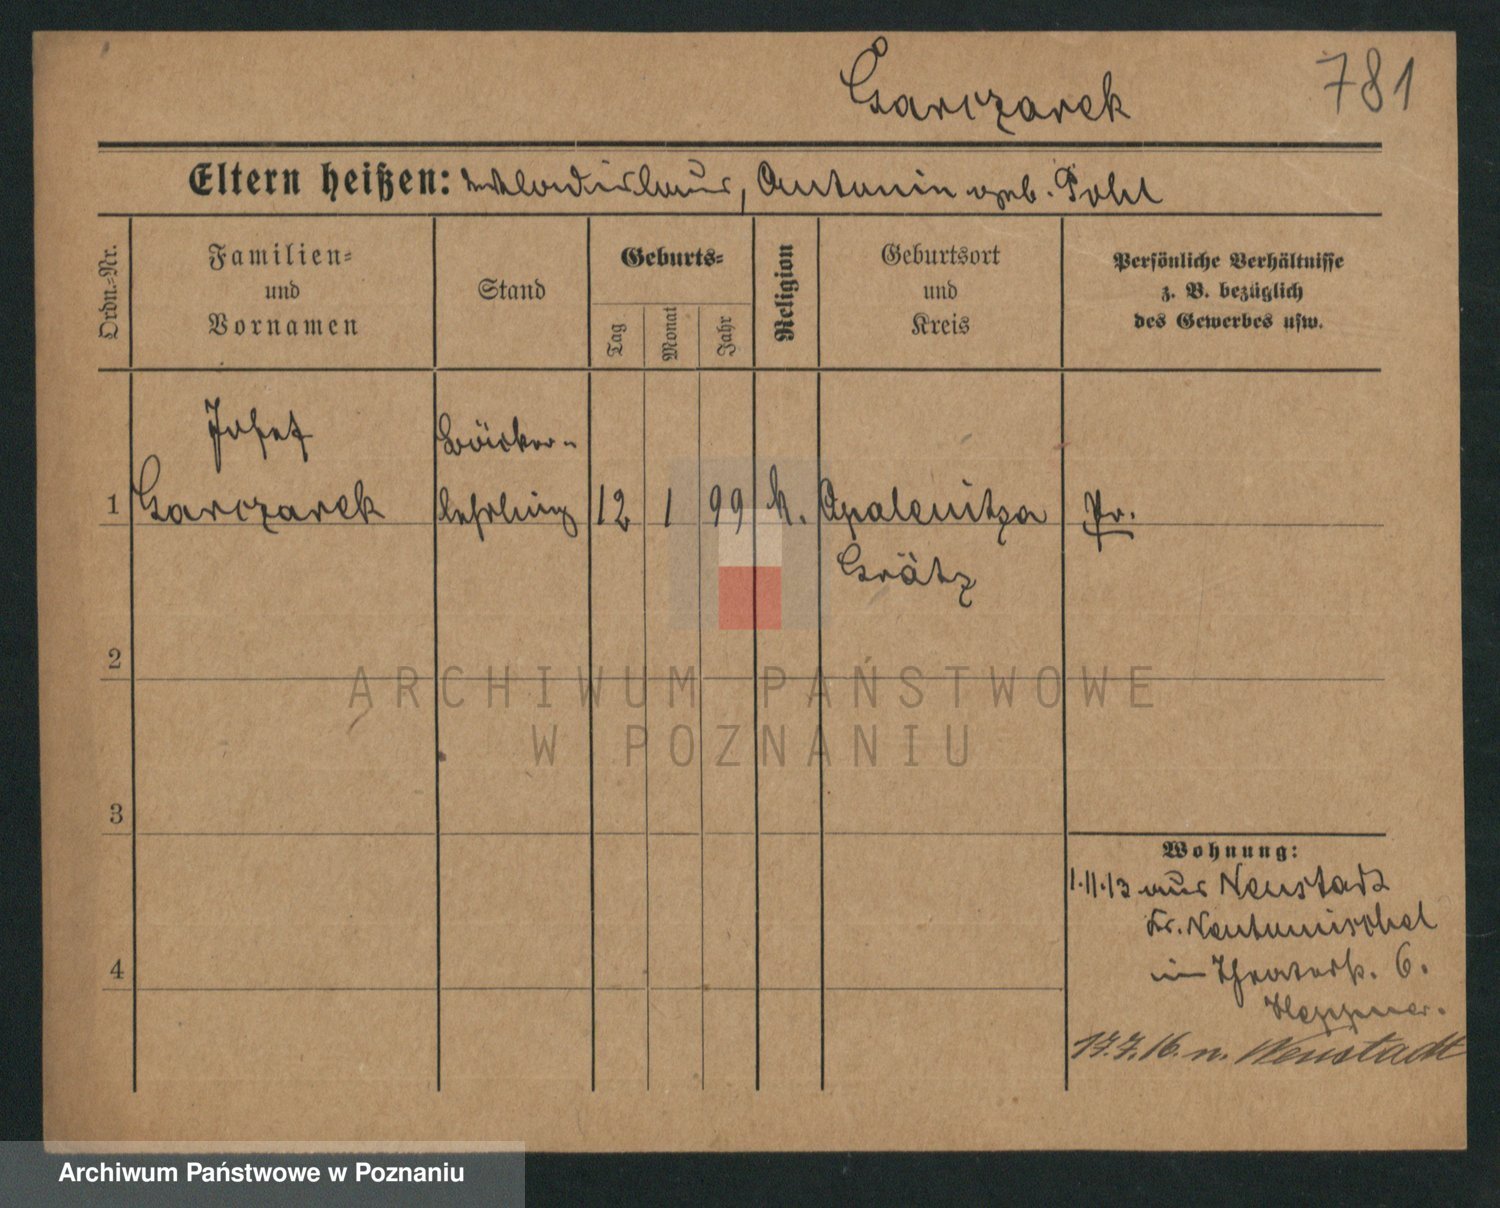 Garczarek
781
Eltern heißen: Wladislaus, Antonin geb. Pohl
Ordn.-Nr.
Familien-
und
Vornamen
Stand
Geburts-
Tag
Monat
Jahr
Religion
Geburtsort
und
Kreis
Persönliche Verhältnisse
z. B. bezüglich
des Gewerbes usw.
Josef
Bäcker-
1 Garczarek lehrling 12 1 99 k. Opalenitza Pr.
Grätz
2
ARCHIWUM PAŃSTWOWE
W POZNANIU
3
Wohnung:
1.11.13 aus Neustadt
Kr. Neutomischel
Theaterstr. 6.
Heppner.
4
17.7.16. n. Neustadt
Archiwum Państwowe w Poznaniu